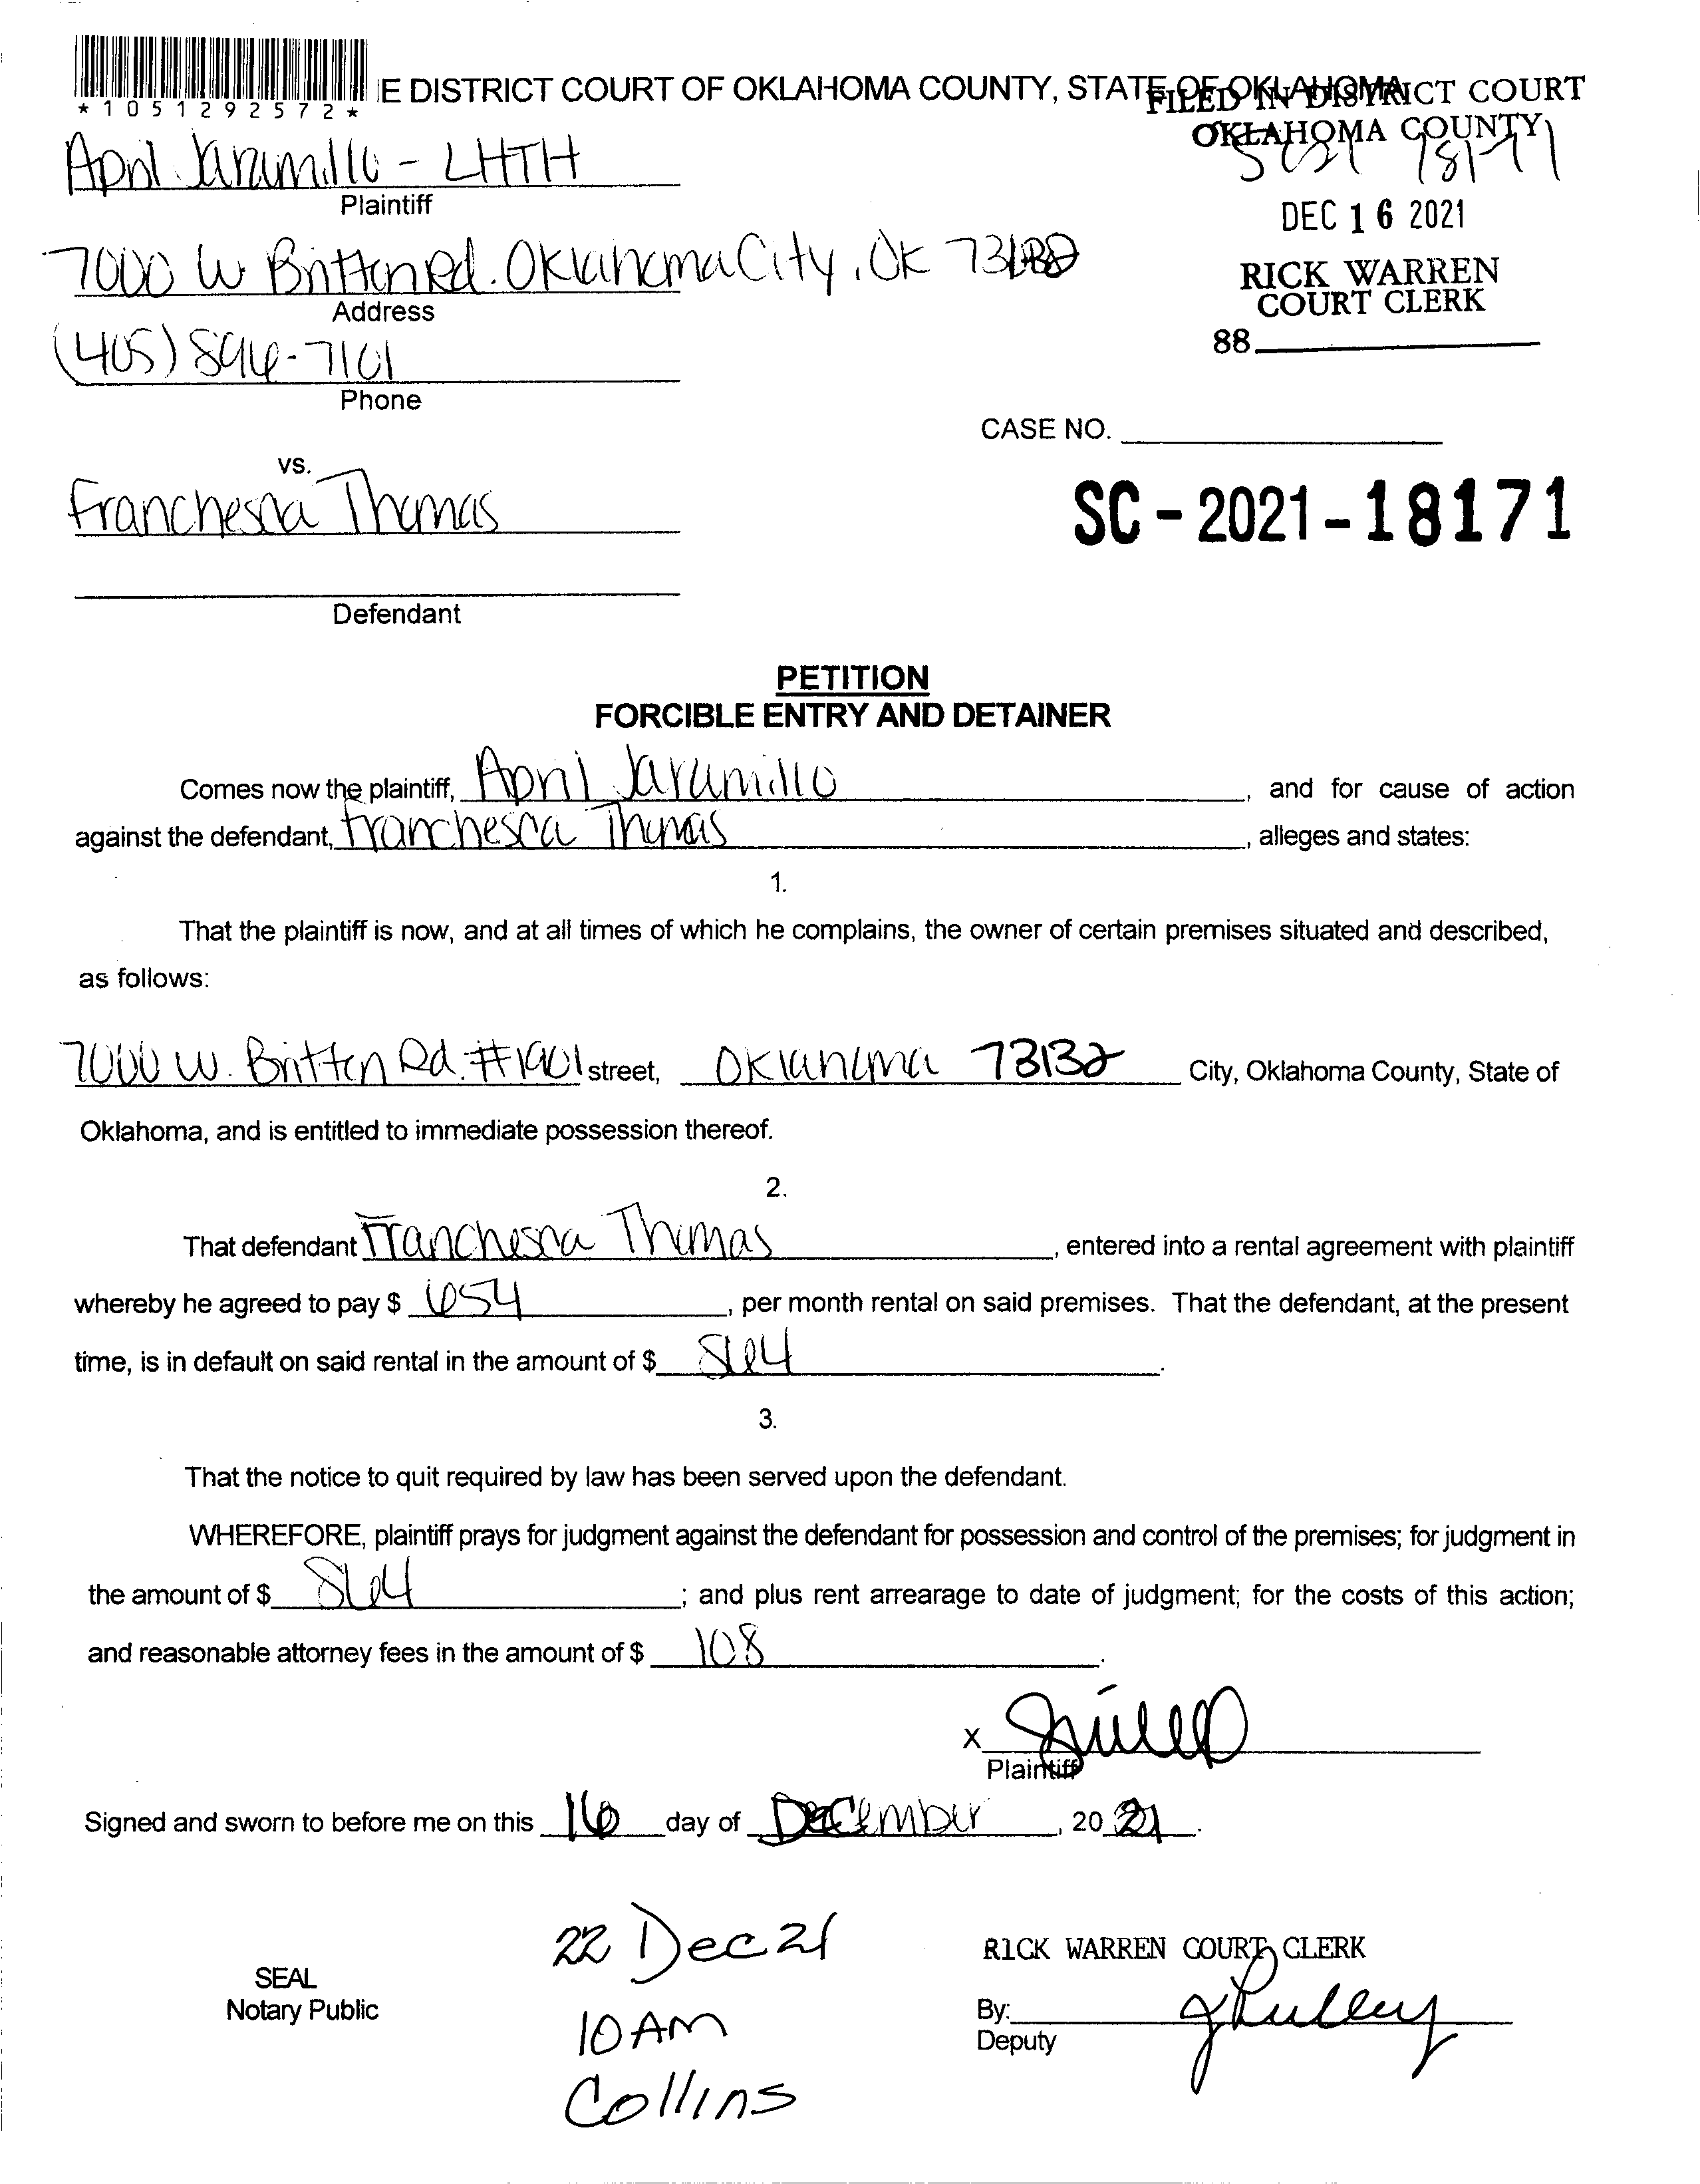 *1051292572*
E DISTRICT COURT OF OKLAHOMA COUNTY, STATE OF OKLAHOMA
FILED IN DISTRICT COURT
OKLAHOMA COUNTY
April Jaramillo - LHTH
Plaintiff
DEC 16 2021
7000 W Britton Rd. Oklahoma City, OK
RICK WARREN
COURT CLERK
Address
88
(405) 896-7101
Phone
CASE NO.
vs.
Franchesca Thomas
SC-2021-18171
Defendant
PETITION
FORCIBLE ENTRY AND DETAINER
Comes now the plaintiff, April Jaramillo, and for cause of action
against the defendant, Franchesca Thomas, alleges and states:
1.
That the plaintiff is now, and at all times of which he complains, the owner of certain premises situated and described,
as follows:
7000 W. Britton Rd. #1901 street, Oklahoma 73132 City, Oklahoma County, State of
Oklahoma, and is entitled to immediate possession thereof.
2.
That defendant Franchesca Thomas, entered into a rental agreement with plaintiff
whereby he agreed to pay $ 654, per month rental on said premises. That the defendant, at the present
time, is in default on said rental in the amount of $ 864.
3.
That the notice to quit required by law has been served upon the defendant.
WHEREFORE, plaintiff prays for judgment against the defendant for possession and control of the premises; for judgment in
the amount of $ 864; and plus rent arrearage to date of judgment; for the costs of this action;
and reasonable attorney fees in the amount of $ 108.
X
Plaintiff
Signed and sworn to before me on this 16 day of December, 20 21.
22 Dec 21
RICK WARREN COURT CLERK
SEAL
Notary Public
10 AM
By:
Deputy
Collins